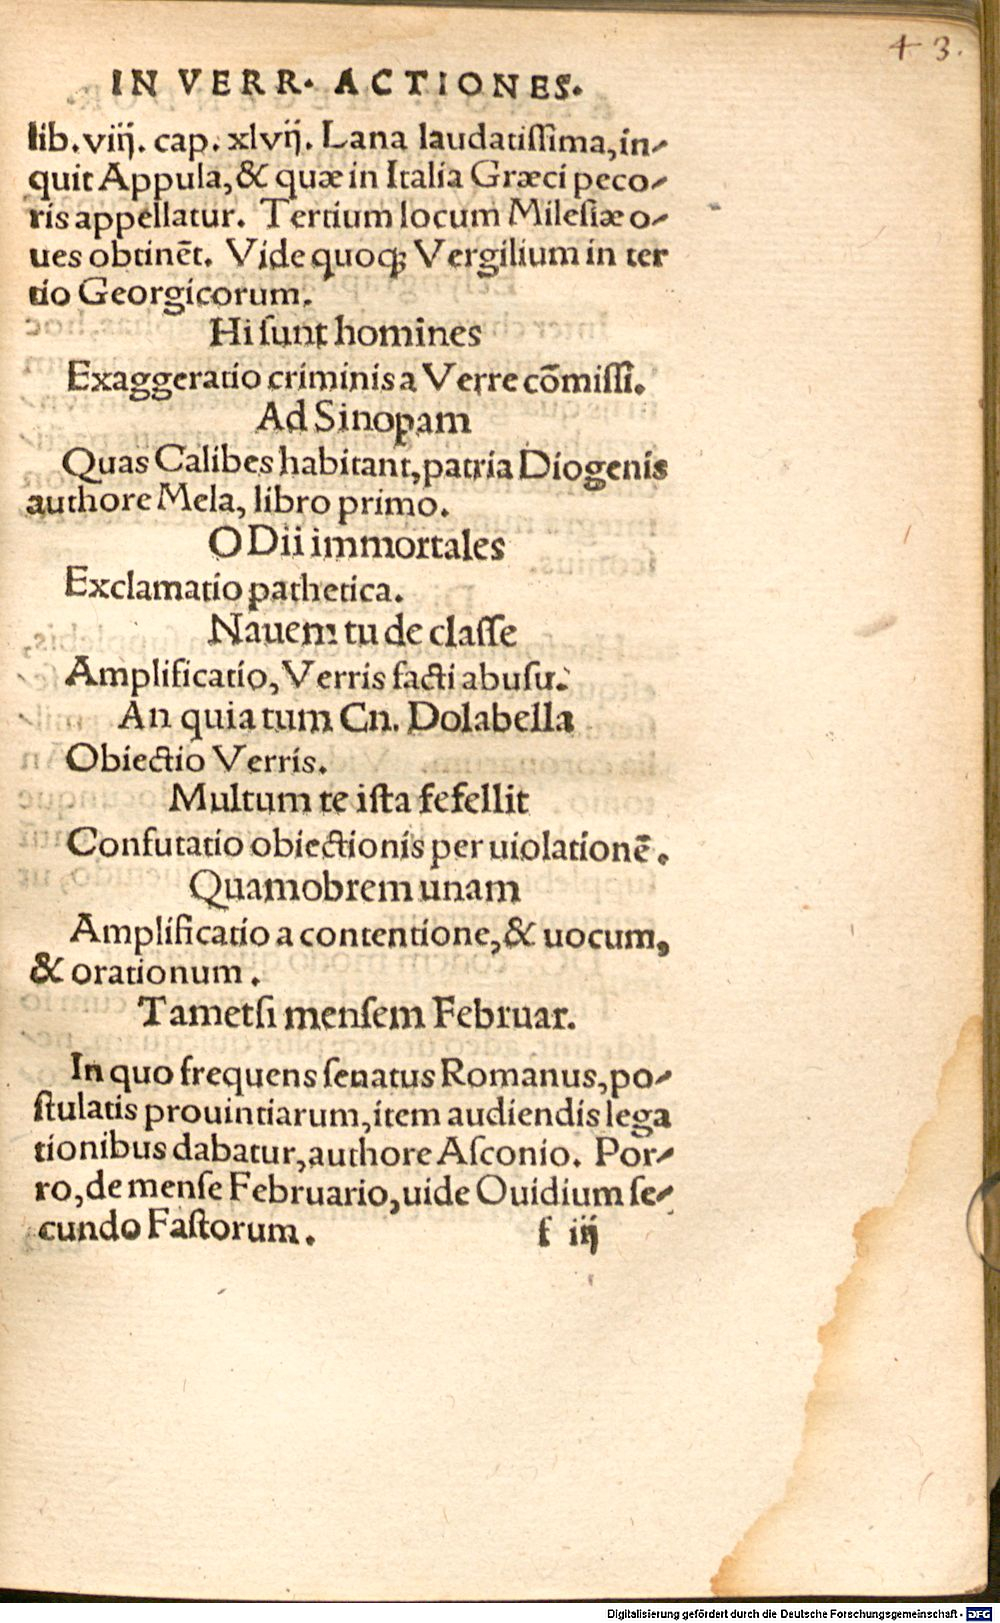 43.
IN VERR. ACTIONES.
lib. viij. cap. xlvij. Lana laudatiſſima, in-
quit Appula, & quæ in Italia Græci peco-
ris appellatur. Tertium locum Mileſiæ o-
ues obtinēt. Vide quoqꝫ Vergilium in ter
tio Georgicorum.
Hi ſunt homines
Exaggeratio criminis a Verre cōmiſſi.
Ad Sinopam
Quas Calibes habitant, patria Diogenis
authore Mela, libro primo.
O Dii immortales
Exclamatio pathetica.
Nauem tu de claſſe
Amplificatio, Verris facti abusu.
An quia tum Cn. Dolabella
Obiectio Verris.
Multum te iſta fefellit
Confutatio obiectionis per uiolationē.
Quamobrem unam
Amplificatio a contentione, & uocum,
& orationum.
Tametſi menſem Februar.
In quo frequens ſenatus Romanus, po-
ſtulatis prouintiarum, item audiendis lega
tionibus dabatur, authore Aſconio. Por-
ro, de menſe Februario, uide Ouidium ſe-
cundo Faſtorum.
f iij
Digitalisierung gefördert durch die Deutsche Forschungsgemeinschaft - DFG